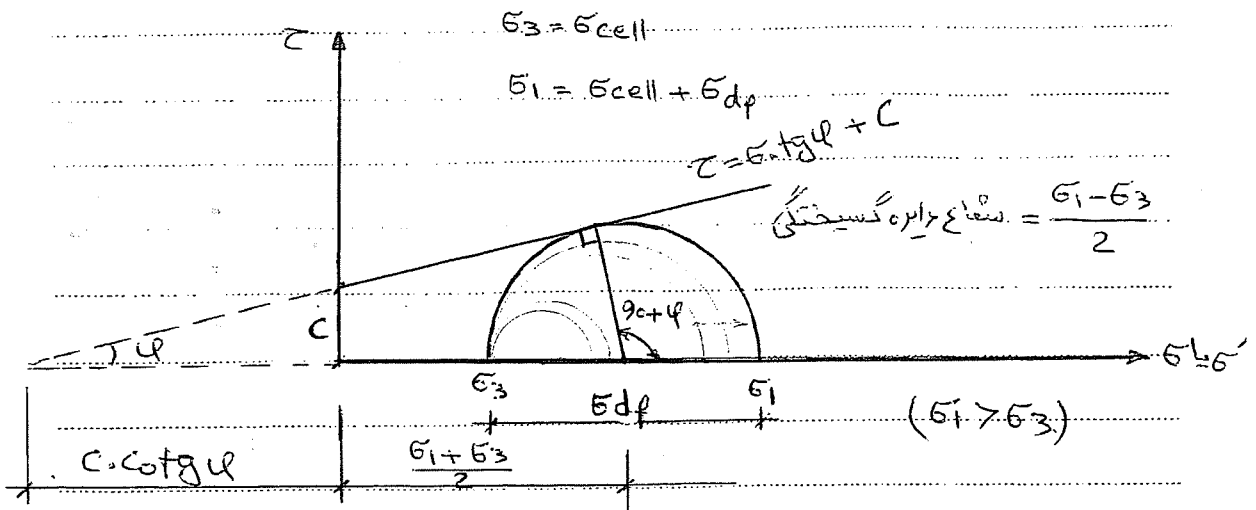 τ
σ3 = σcell
σ1 = σcell + σdf
τ = σ.tgφ + C
شعاع دایره گسیختگی = σ1-σ3 / 2
90+φ
C
φ
σ یا σ'
σ3
σ1
σdf
(σ1 > σ3)
C.cotgφ
σ1+σ3 / 2